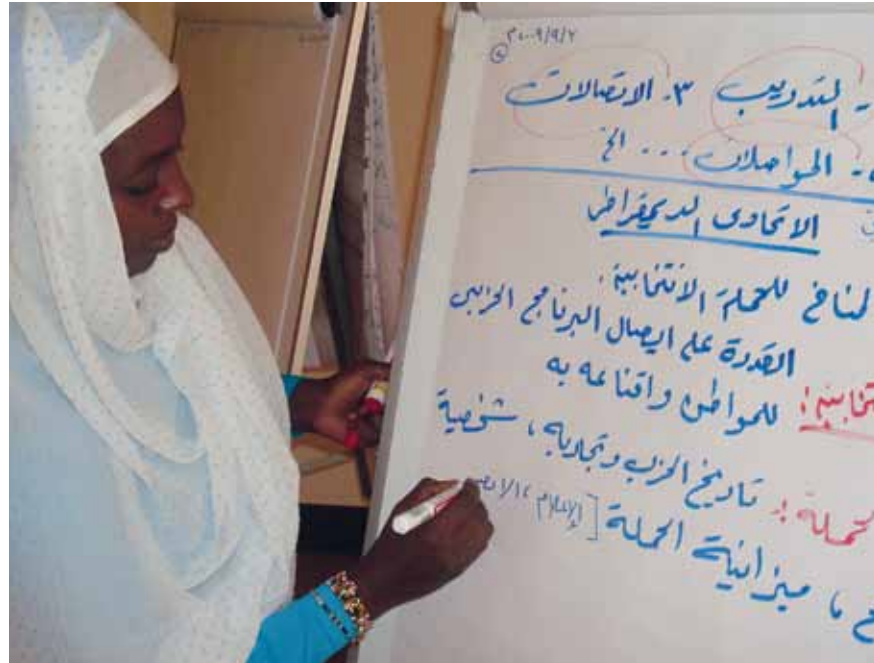 ٢٠٠٩/٩/٢
- التدريب ٣. الاتصالات
- المواصلات . . . الخ
الاتحادى الديمقراطى
المناخ للحملة الانتخابية.
القدرة على ايصال البرنامج الحزبى
للمواطن واقناعه به
تاريخ الحزب وتجاربه ، شخصية
ميزانية الحملة [الإعلام ،